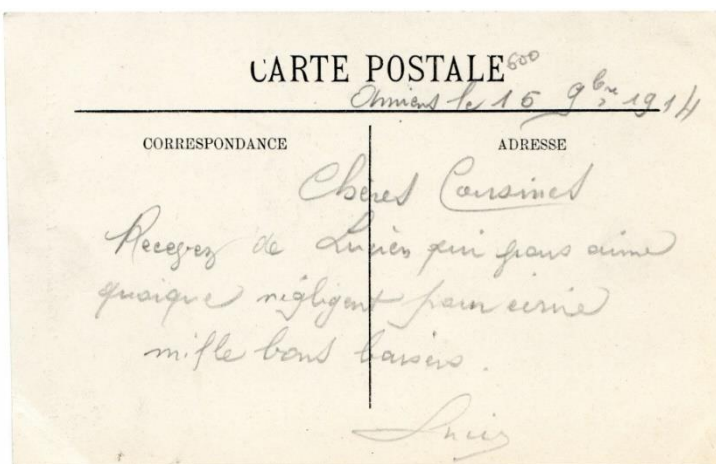 CARTE POSTALE
600
Amiens le 15 9bre 1914
CORRESPONDANCE
ADRESSE
Chères Cousines
Recevez de Lucien qui vous aime
quoique négligent pour écrire
mille bons baisers.
Lucien